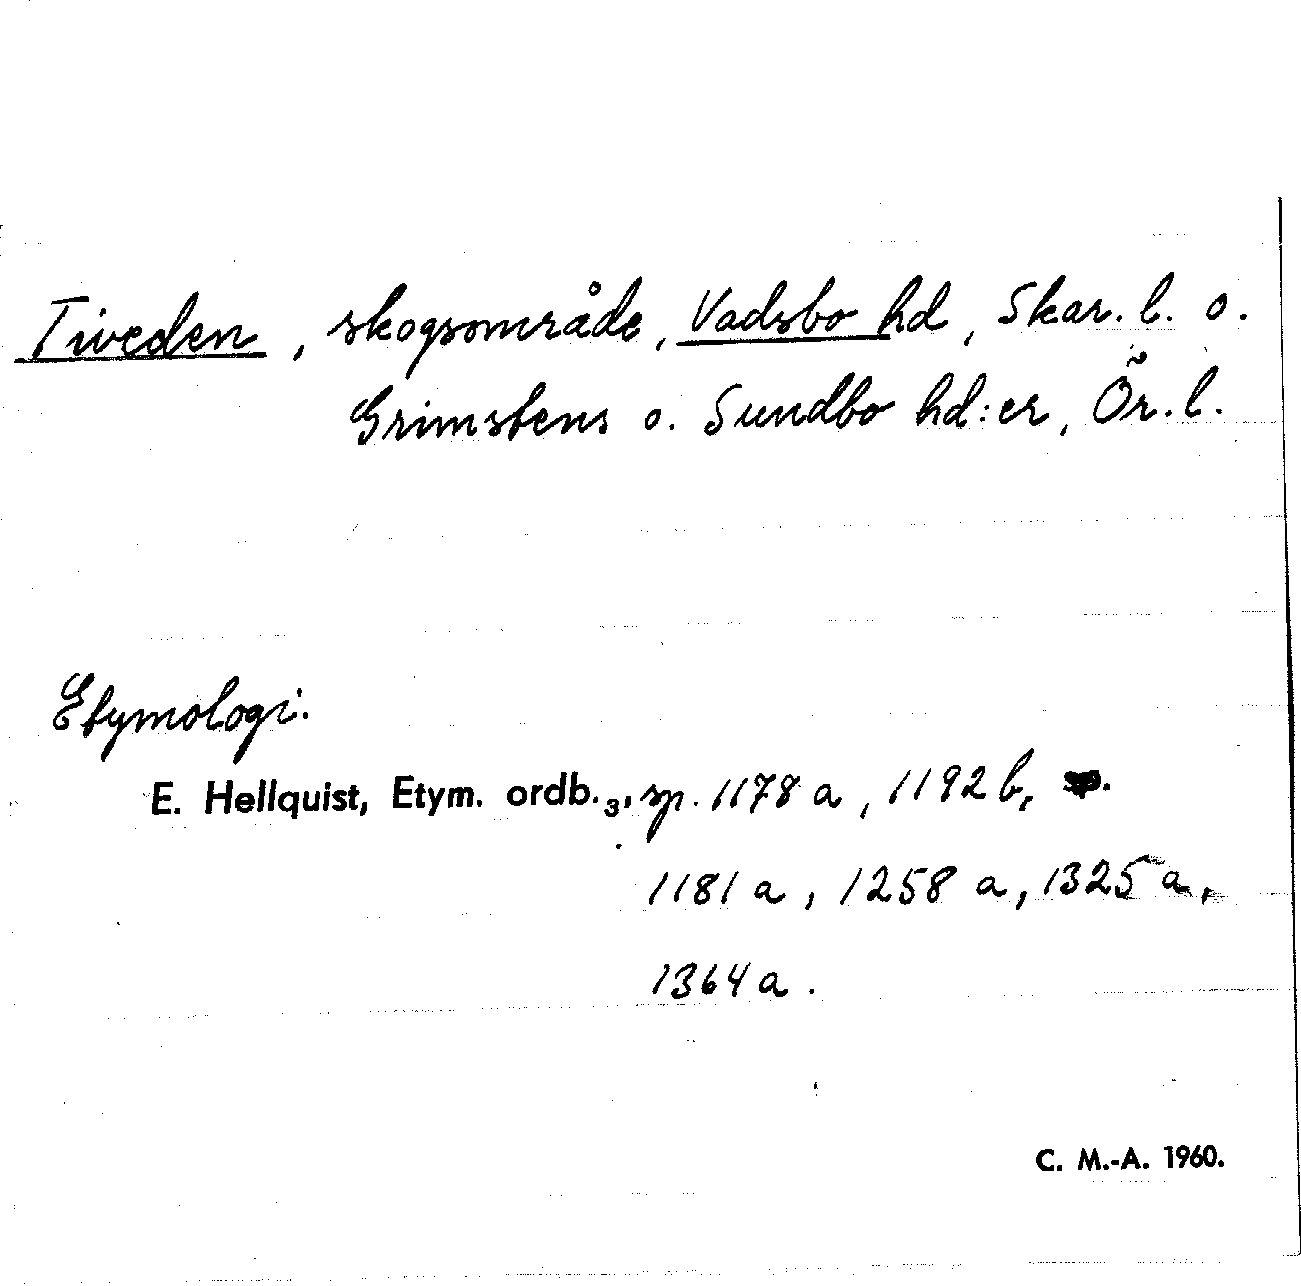 Tiveden, skogsområde, Vadsbo hd, Skar. l. o.
Grimstens o. Sundbo hd:er, Ör. l.
Etymologi.
E. Hellquist, Etym. ordb.₃, sp. 1178 a, 1192 b,
1181 a, 1258 a, 1325 a,
1364 a.
C. M.-A. 1960.